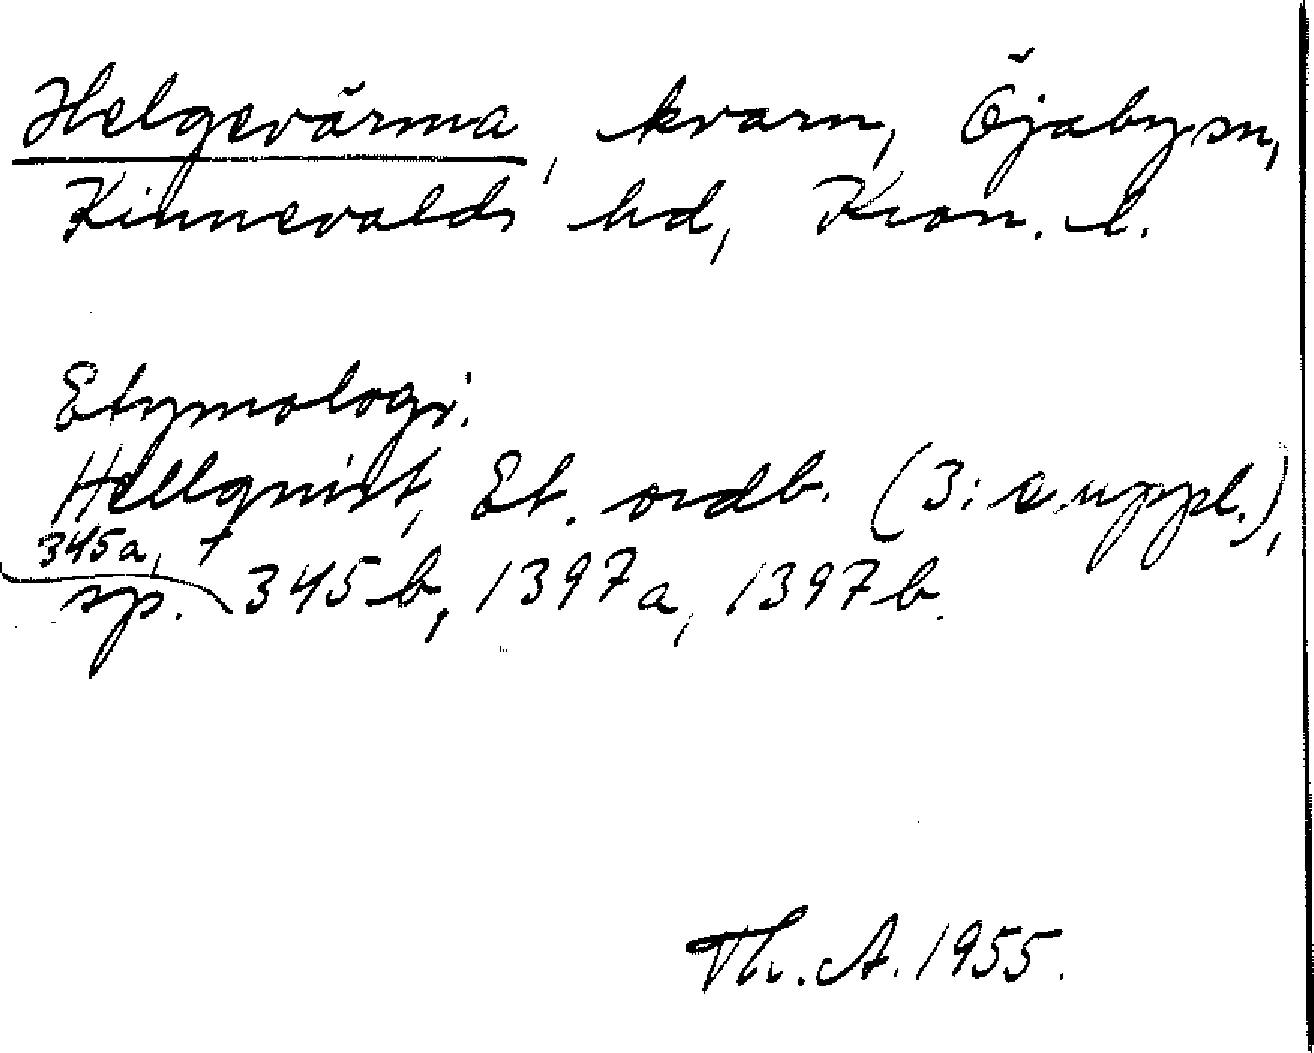 Helgevärma, kvarn, Öjaby sn,
Kinnevalds hd, Kron. l.
Etymologi.
Hellquist, Et. ordb. (3:e uppl.),
345a, +
sp. 345b, 1397a, 1397b.
Th. A. 1955.